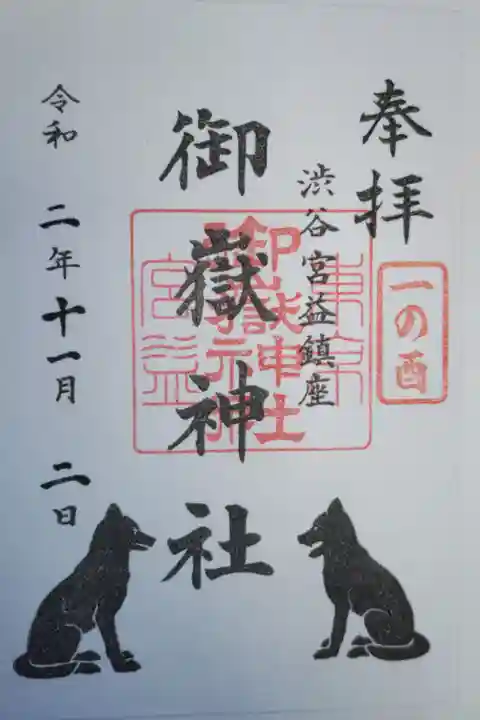 奉拝
一の酉
渋谷宮益鎮座
御嶽神社
令和 二年十一月 二日